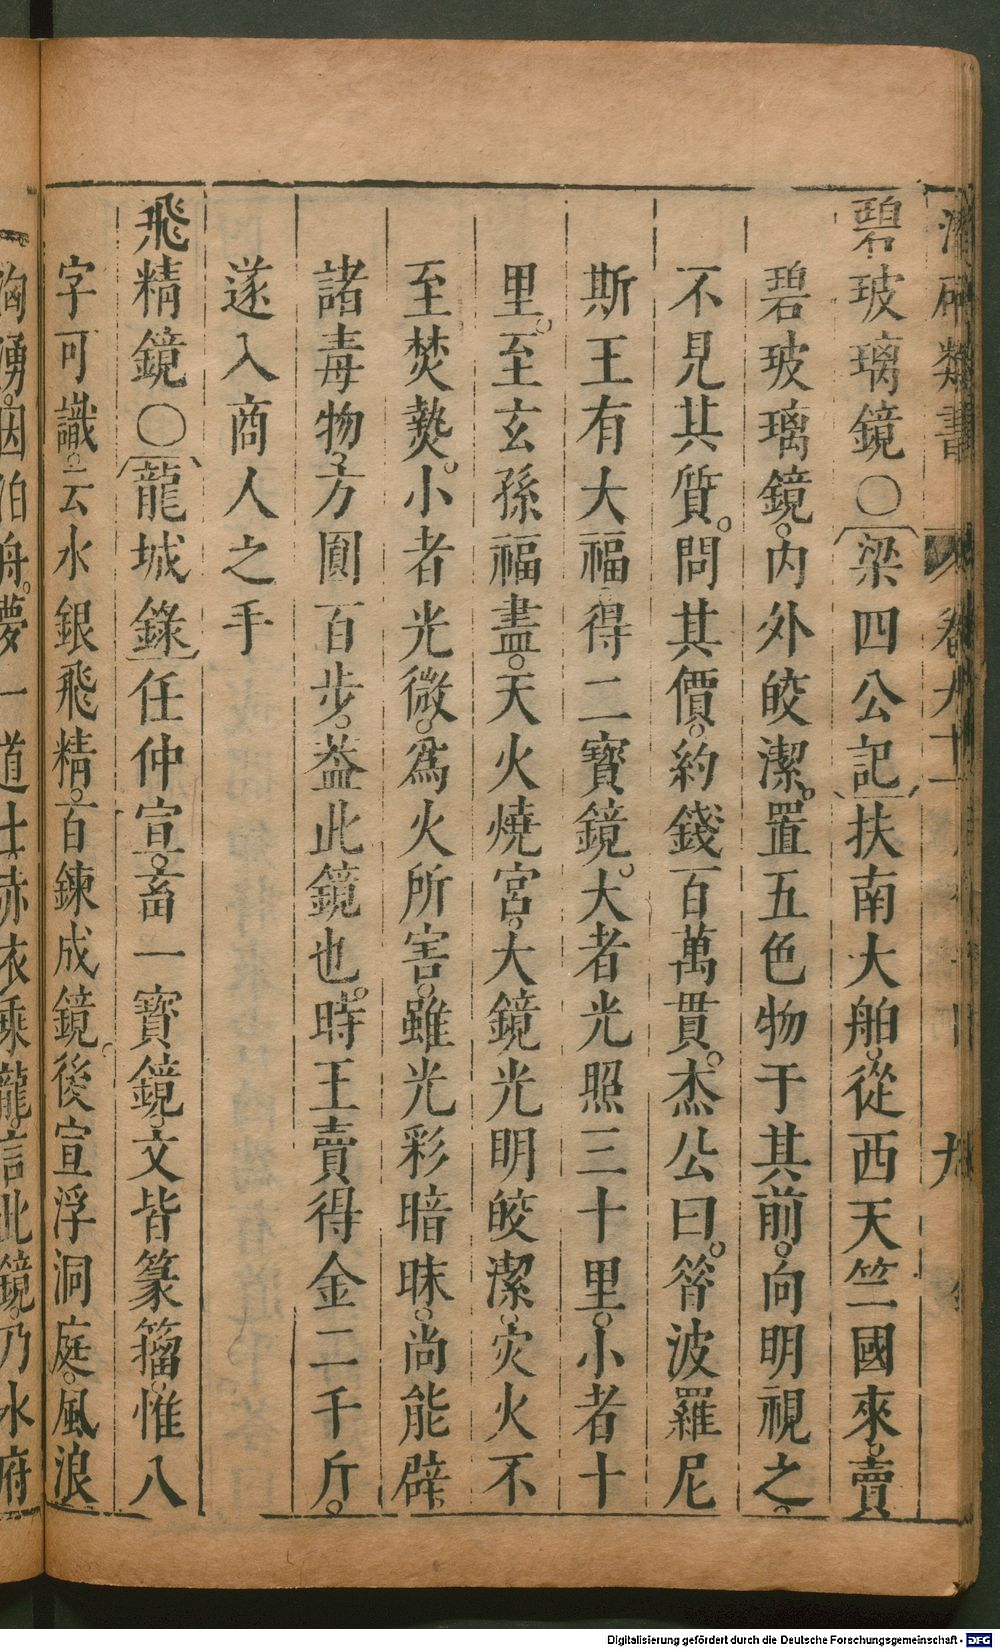 類書 卷九十 九
碧玻瓈鏡〇梁四公記扶南大舶從西天竺國來賣
碧玻瓈鏡内外皎潔置五色物于其前向明視之
不見其質問其價約錢百萬貫杰公曰答波羅尼
斯王有大福得二寶鏡大者光照三十里小者十
里至玄孫福盡天火燒宮大鏡光明皎潔灾火不
至焚爇小者光微爲火所害雖光彩暗昧尚能辟
諸毒物方圓百步葢此鏡也時王賣得金二千斤
遂入商人之手
飛精鏡〇龍城錄任仲宣畜一寶鏡文皆篆籀惟八
字可識云水銀飛精百鍊成鏡後宣浮洞庭風浪
洶湧因泊舟夢一道士赤衣乘龍言此鏡乃水府
Digitalisierung gefördert durch die Deutsche Forschungsgemeinschaft - DFG